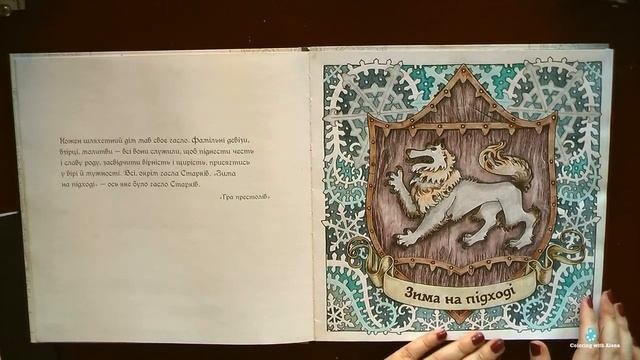 Кожен шляхетний дім мав своє гасло. Фамільні девізи,
взірці, молитви — всі вони служили, щоб піднести честь
і славу роду, засвідчити вірність і щирість, присягтись
у вірі й мужності. Всі, окрім гасла Старків. «Зима
на підході» — ось яке було гасло Старків.
«Гра престолів»
Зима на підході
Coloring with Alena